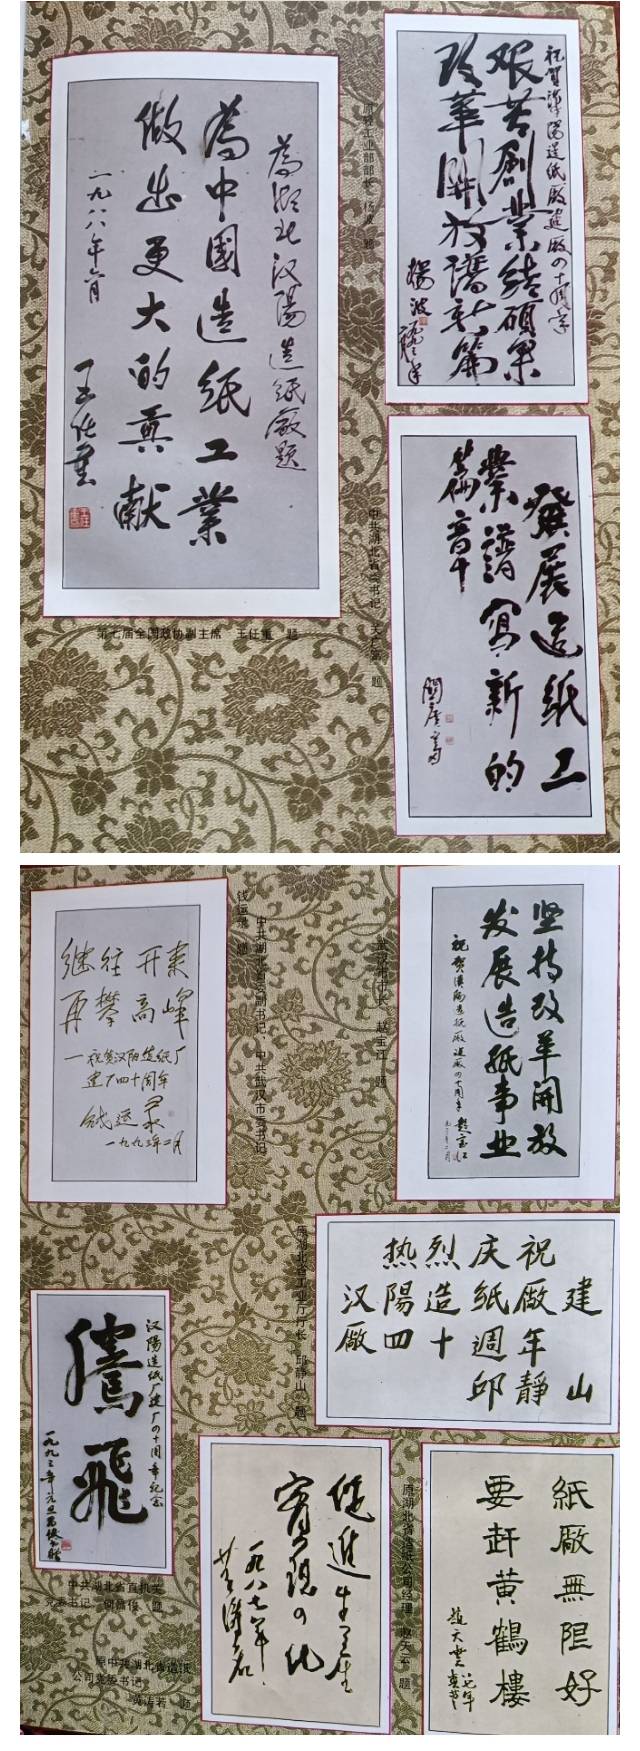 为湖北汉阳造纸厰题
為中國造纸工業
做出更大的貢献
一九八八年六月
王任重
第七届全国政协副主席 王任重 题
祝賀漢陽造紙廠建廠四十周年
艰苦創業结碩果
改革開放譜新篇
楊波
原轻工业部部长 杨波 题
發展造纸工
業譜寫新的
華章
中共湖北省委书记 关广富 题
继往开来
再攀高峰
一祝贺汉阳造纸厂
建厂四十周年
钱运录
一九九三年二月
中共湖北省委副书记、中共武汉市委书记
钱运录 题
坚持改革開放
发展造纸事业
祝贺漢陽造纸廠建廠四十周年
赵宝江
武汉市市长 赵宝江 题
祝庆烈热
建廠紙造陽汉
年週十四廠
山靜邱
原湖北省工业厅厅长 邱静山 题
汉陽造纸厂建厂四十周年纪念
騰飛
一九九三年元旦
中共湖北省直机关
党委书记 题
促進生产
實现四化
一九八七年
原中共湖北省造纸
公司党委书记
黄涛若 题
紙廠無限好
要赶黄鶴樓
趙天雲
原湖北省造纸公司经理 赵天云 题